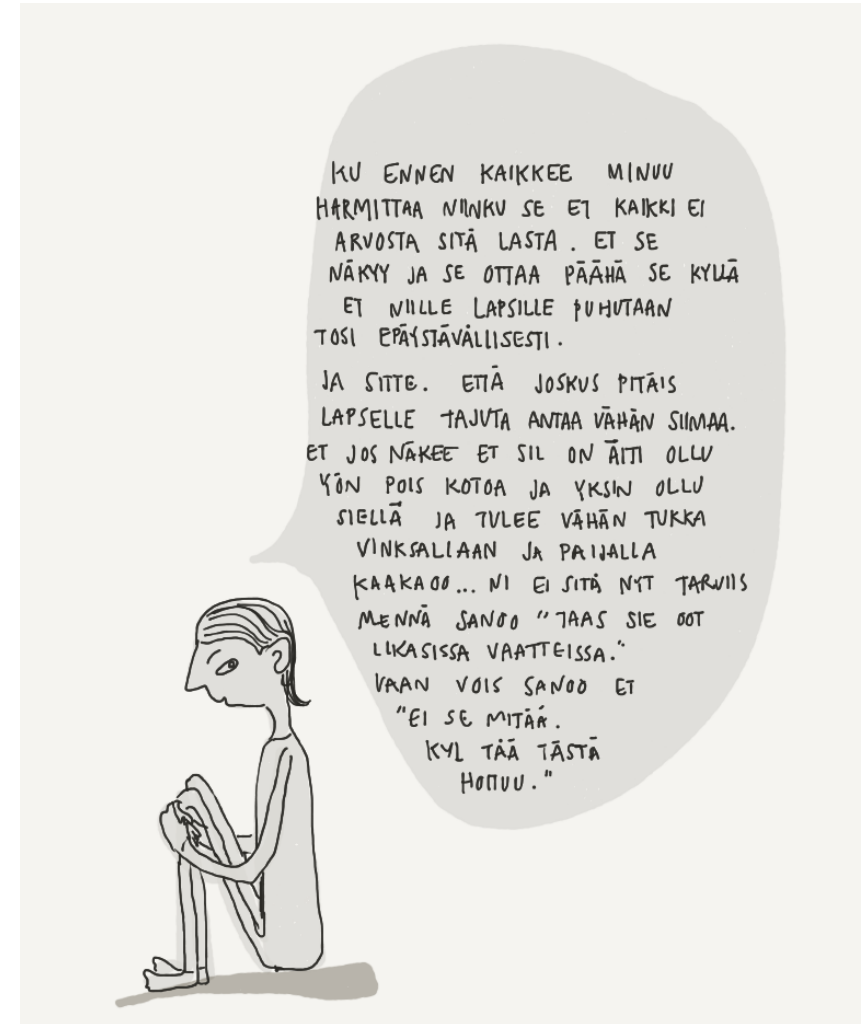 KU ENNEN KAIKKEE MINUU
HARMITTAA NIINKU SE ET KAIKKI EI
ARVOSTA SITÄ LASTA. ET SE
NÄKYY JA SE OTTAA PÄÄHÄ SE KYLLÄ
ET NIILLE LAPSILLE PUHUTAAN
TOSI EPÄYSTÄVÄLLISESTI.
JA SITTE. ETTÄ JOSKUS PITÄIS
LAPSELLE TAJUTA ANTAA VÄHÄN SIIMAA.
ET JOS NÄKEE ET SIL ON ÄITI OLLU
YÖN POIS KOTOA JA YKSIN OLLU
SIELLÄ JA TULEE VÄHÄN TUKKA
VINKSALLAAN JA PAIJALLA
KAAKAOO... NI EI SITÄ NYT TARVIIS
MENNÄ SANOO "TAAS SIE OOT
LIKASISSA VAATTEISSA."
VAAN VOIS SANOO ET
"EI SE MITÄÄ.
KYL TÄÄ TÄSTÄ
HOITUU."